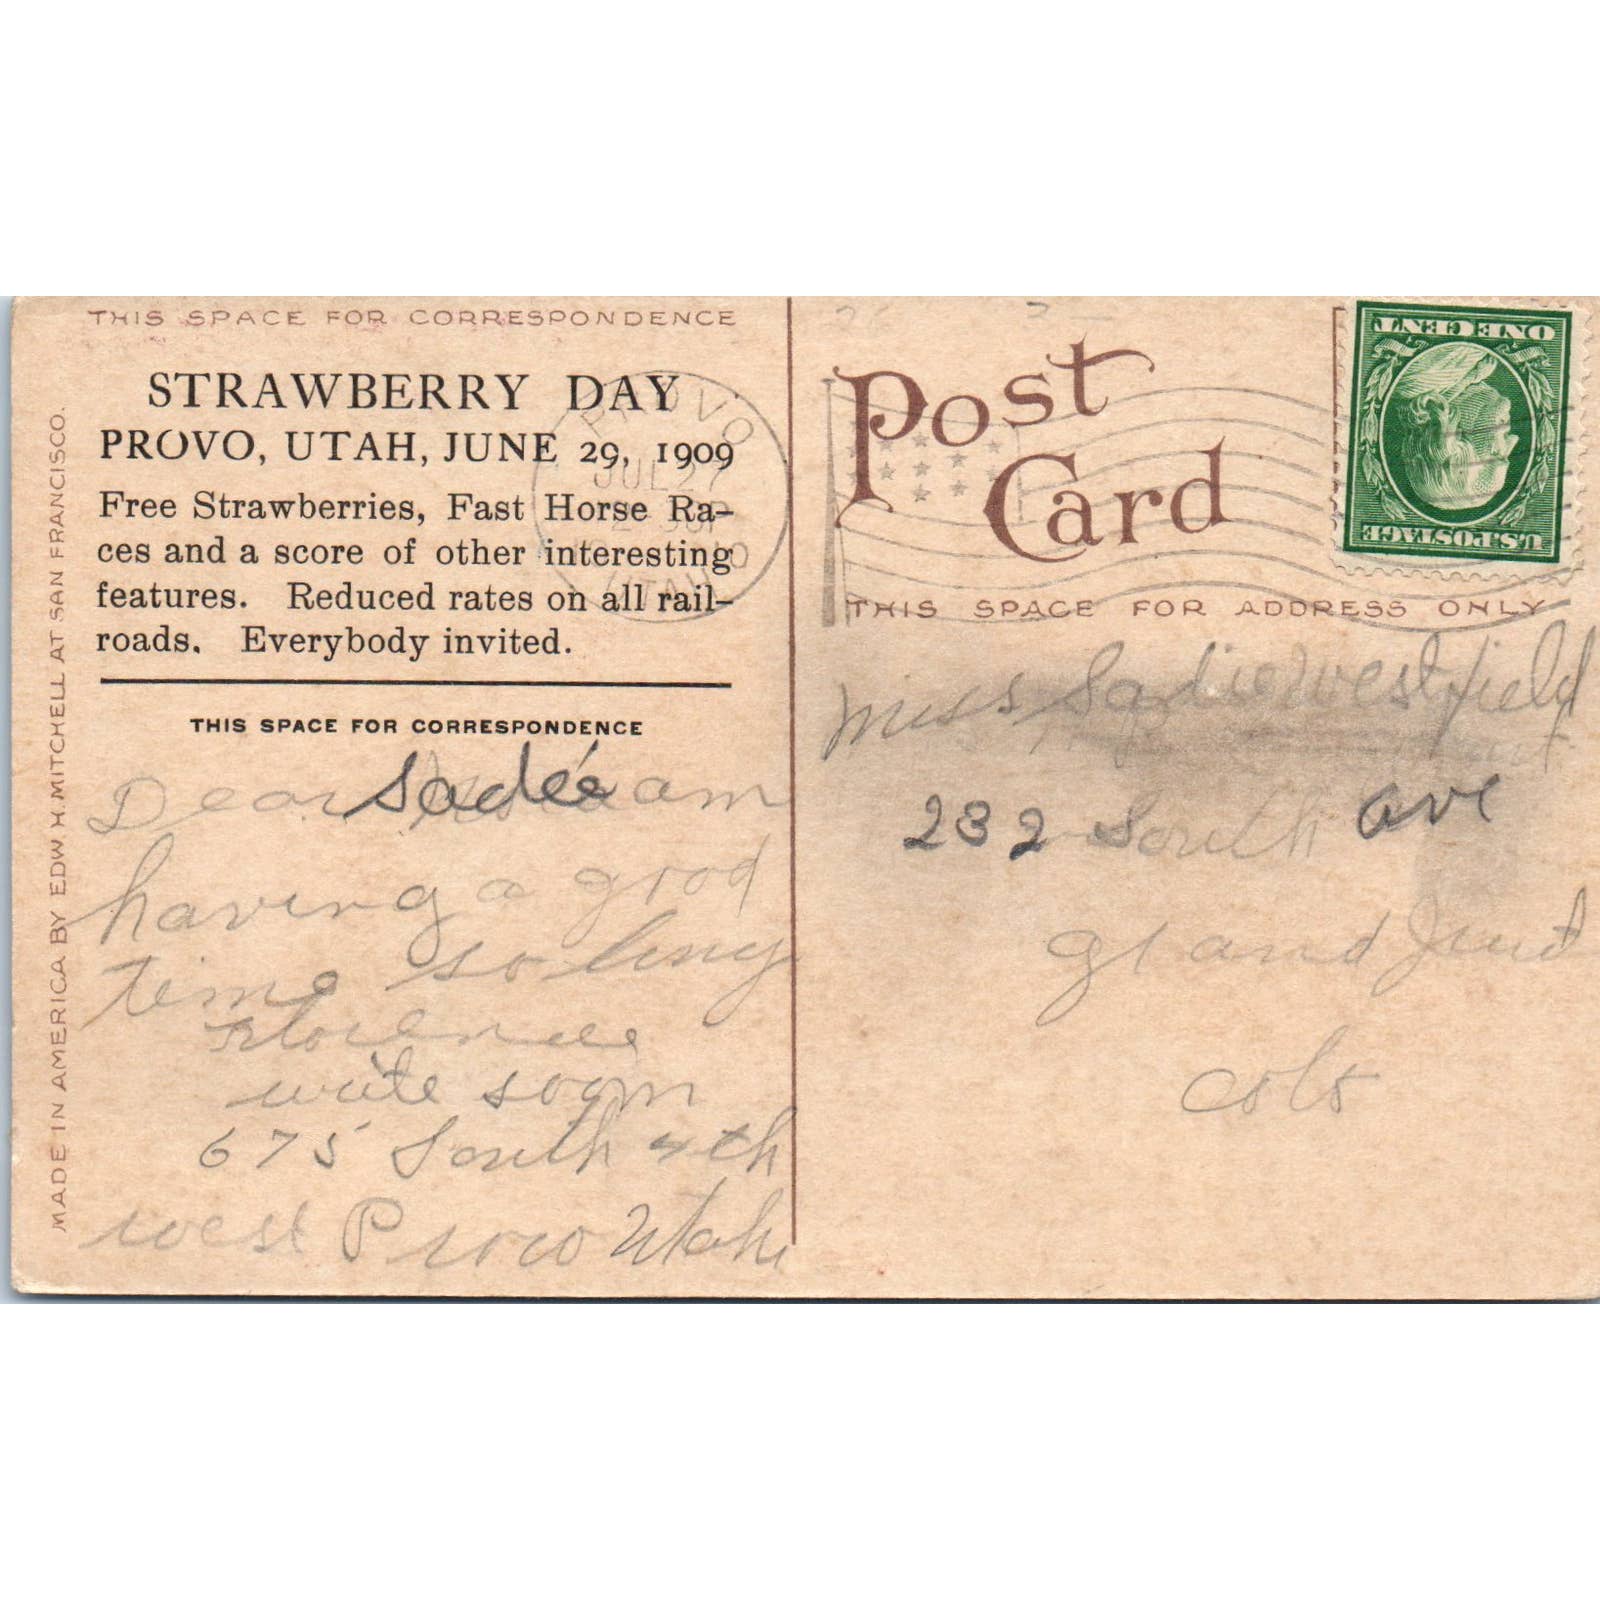 THIS SPACE FOR CORRESPONDENCE
STRAWBERRY DAY
PROVO, UTAH, JUNE 29, 1909
Free Strawberries, Fast Horse Ra-
ces and a score of other interesting
features. Reduced rates on all rail-
roads. Everybody invited.
THIS SPACE FOR CORRESPONDENCE
Dear Sadie am
having a good
time so long
Florence
write soon
675 South 4th
west Provo Utah
MADE IN AMERICA BY EDW. H. MITCHELL AT SAN FRANCISCO.
PROVO
JUL 27
UTAH
Post Card
ONE CENT
U.S. POSTAGE
THIS SPACE FOR ADDRESS ONLY
Miss Sadie Westfield
232 South ave
Grand Junct
Colo